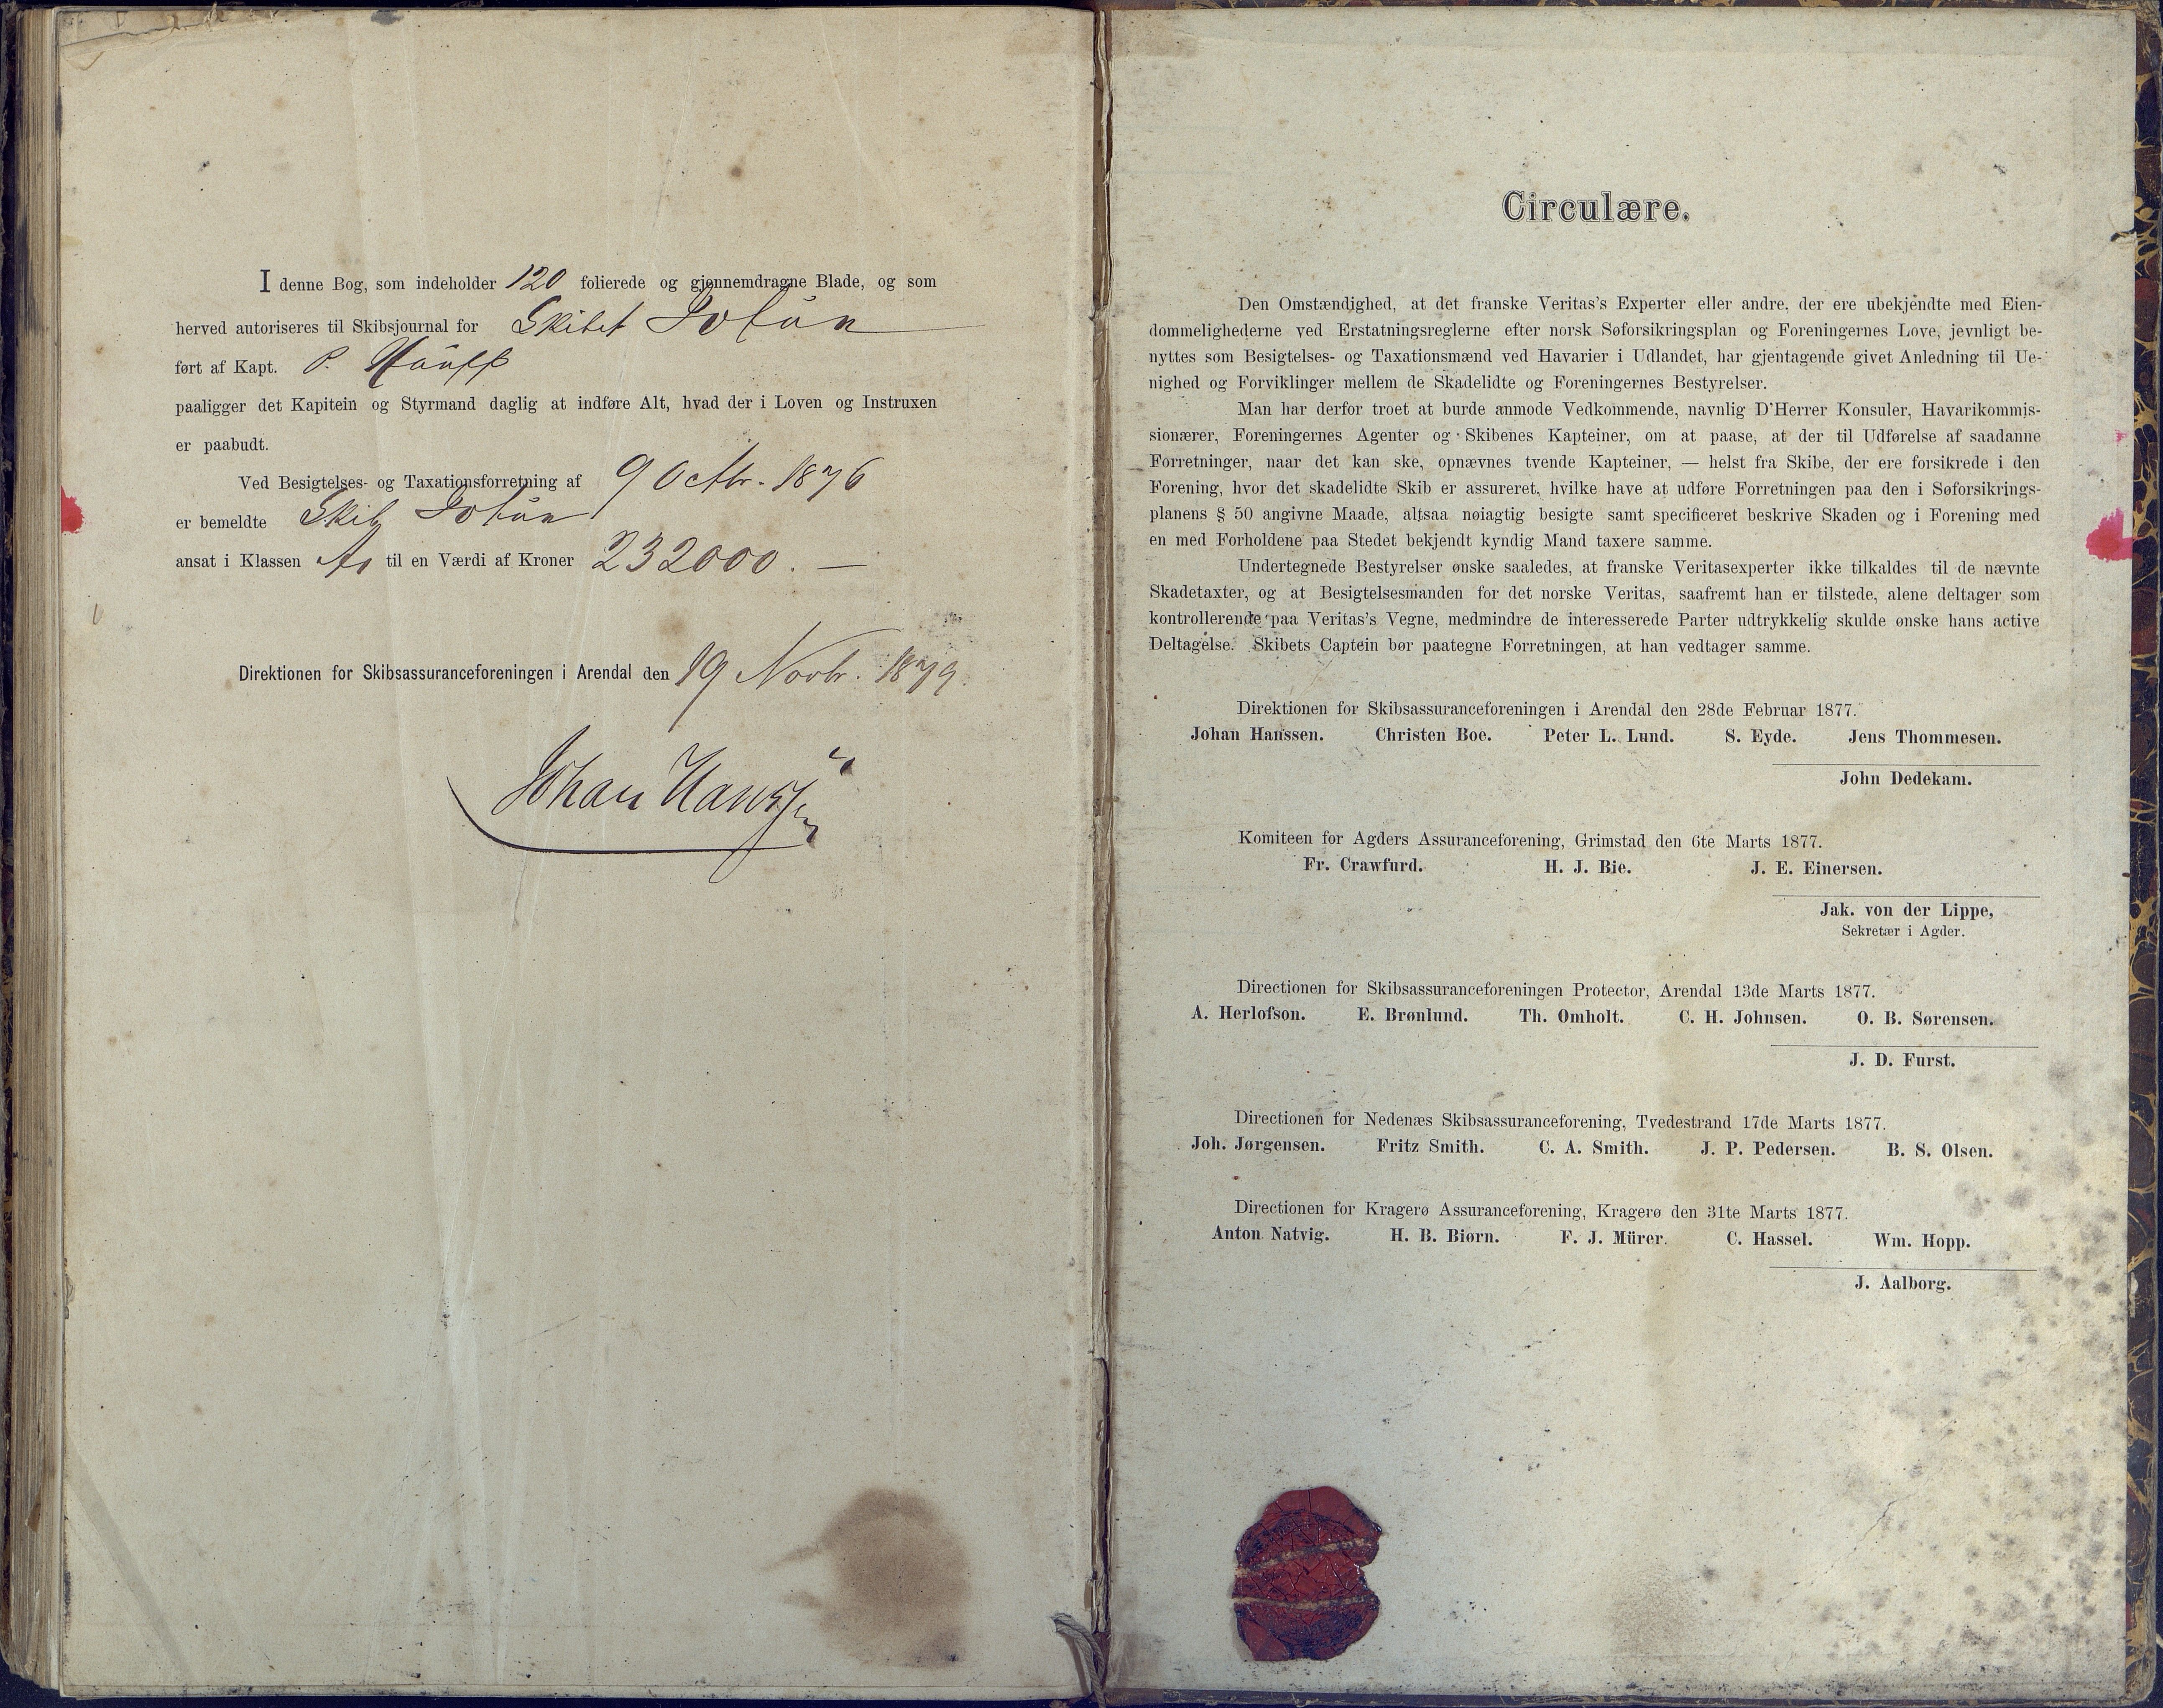 I denne Bog, som indeholder 120 folierede og gjennemdragne Blade, og som
herved autoriseres til Skibsjournal for Skibet Jotun
ført af Kapt. P.
paaligger det Kapitein og Styrmand daglig at indføre Alt, hvad der i Loven og Instruxen
er paabudt.
Ved Besigtelses- og Taxationsforretning af 9 Octbr. 1876
er bemeldte Skib Jotun
ansat i Klassen til en Værdi af Kroner 232000. —
Direktionen for Skibsassuranceforeningen i Arendal den 19 Novbr. 1879.
Johan Hanssen
Circulære.
Den Omstændighed, at det franske Veritas's Experter eller andre, der ere ubekjendte med Eien-
dommelighederne ved Erstatningsreglerne efter norsk Søforsikringsplan og Foreningernes Love, jevnligt be-
nyttes som Besigtelses- og Taxationsmænd ved Havarier i Udlandet, har gjentagende givet Anledning til Ue-
nighed og Forviklinger mellem de Skadelidte og Foreningernes Bestyrelser.
Man har derfor troet at burde anmode Vedkommende, navnlig D'Herrer Konsuler, Havarikommis-
sionærer, Foreningernes Agenter og Skibenes Kapteiner, om at paase, at der til Udførelse af saadanne
Forretninger, naar det kan ske, opnævnes tvende Kapteiner, — helst fra Skibe, der ere forsikrede i den
Forening, hvor det skadelidte Skib er assureret, hvilke have at udføre Forretningen paa den i Søforsikrings-
planens § 50 angivne Maade, altsaa nøiagtig besigte samt specificeret beskrive Skaden og i Forening med
en med Forholdene paa Stedet bekjendt kyndig Mand taxere samme.
Undertegnede Bestyrelser ønske saaledes, at franske Veritasexperter ikke tilkaldes til de nævnte
Skadetaxter, og at Besigtelsesmanden for det norske Veritas, saafremt han er tilstede, alene deltager som
kontrollerende paa Veritas's Vegne, medmindre de interesserede Parter udtrykkelig skulde ønske hans active
Deltagelse. Skibets Captein bør paategne Forretningen, at han vedtager samme.
Direktionen for Skibsassuranceforeningen i Arendal den 28de Februar 1877.
Johan Hanssen. Christen Boe. Peter L. Lund. S. Eyde. Jens Thommesen.
John Dedekam.
Komiteen for Agders Assuranceforening, Grimstad den 6te Marts 1877.
Fr. Crawfurd. H. J. Bie. J. E. Einersen.
Jak. von der Lippe,
Sekretær i Agder.
Directionen for Skibsassuranceforeningen Protector, Arendal 13de Marts 1877.
A. Herlofson. E. Brønlund. Th. Omholt. C. H. Johnsen. O. B. Sørensen.
J. D. Furst.
Directionen for Nedenæs Skibsassuranceforening, Tvedestrand 17de Marts 1877.
Joh. Jørgensen. Fritz Smith. C. A. Smith. J. P. Pedersen. B. S. Olsen.
Directionen for Kragerø Assuranceforening, Kragerø den 31te Marts 1877.
Anton Natvig. H. B. Biørn. F. J. Mürer. C. Hassel. Wm. Hopp.
J. Aalborg.